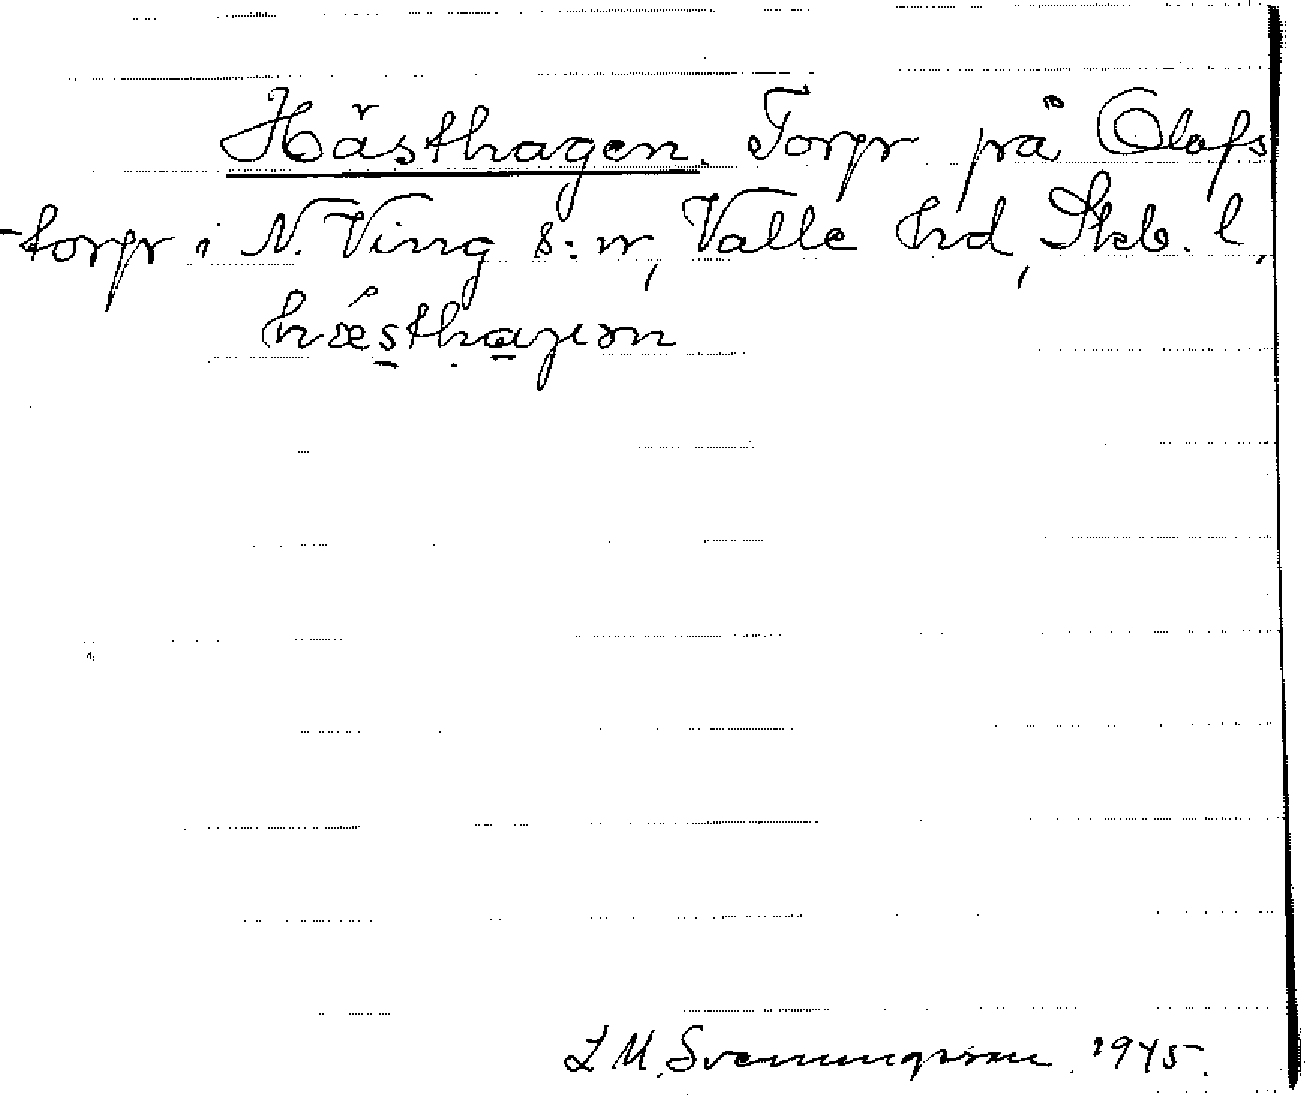 Hästhagen. Torp på Olofs
-torp i N. Ving s:n, Valle hd, Skb. l.
hǽsthaɡen
L M. Svenungsson. 1945.